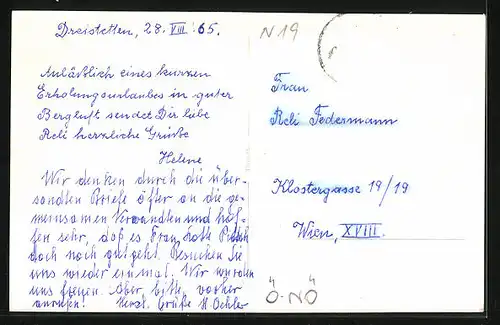 Dreistetten, 28. VIII. 65.
N19
Anläßlich eines kurzen
Erholungsurlaubes in guter
Bergluft sendet Dir liebe
Reli herzliche Grüße
Helene
Wir denken durch die über-
sandten Briefe öfter an die ge-
meinsamen Verwandten und hof-
fen sehr, daß es Frau
doch noch gut geht. Besuchen Sie
uns wieder einmal. Wir würden
uns freuen. Aber bitte vorher
anrufen! Herzl. Grüße H. Oehler
Frau
Reli Federmann
Klostergasse 19/19
Wien, XVIII.
Ö-NÖ